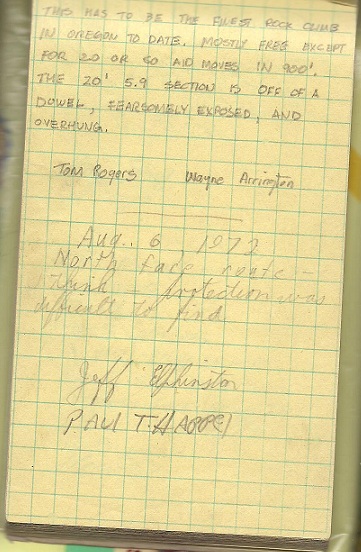 THIS HAS TO BE THE FINEST ROCK CLIMB
IN OREGON TO DATE. MOSTLY FREE EXCEPT
FOR 20 OR SO AID MOVES IN 900'.
THE 20' 5.9 SECTION IS OFF OF A
DOWEL, FEARSOMELY EXPOSED, AND
OVERHUNG.
Tom Rogers Wayne Arrington
Aug. 6 1972
North face route -
I think protection was
difficult to find
Jeff Elphinston
PAUL T. HAPPEL